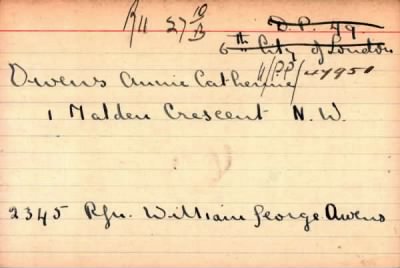 R11 27 10/B D.P. 49
6th City of London
Owens Annie Catherine 11/PP/47950
1 Malden Crescent N.W.
2345 Rfn. William George Owens